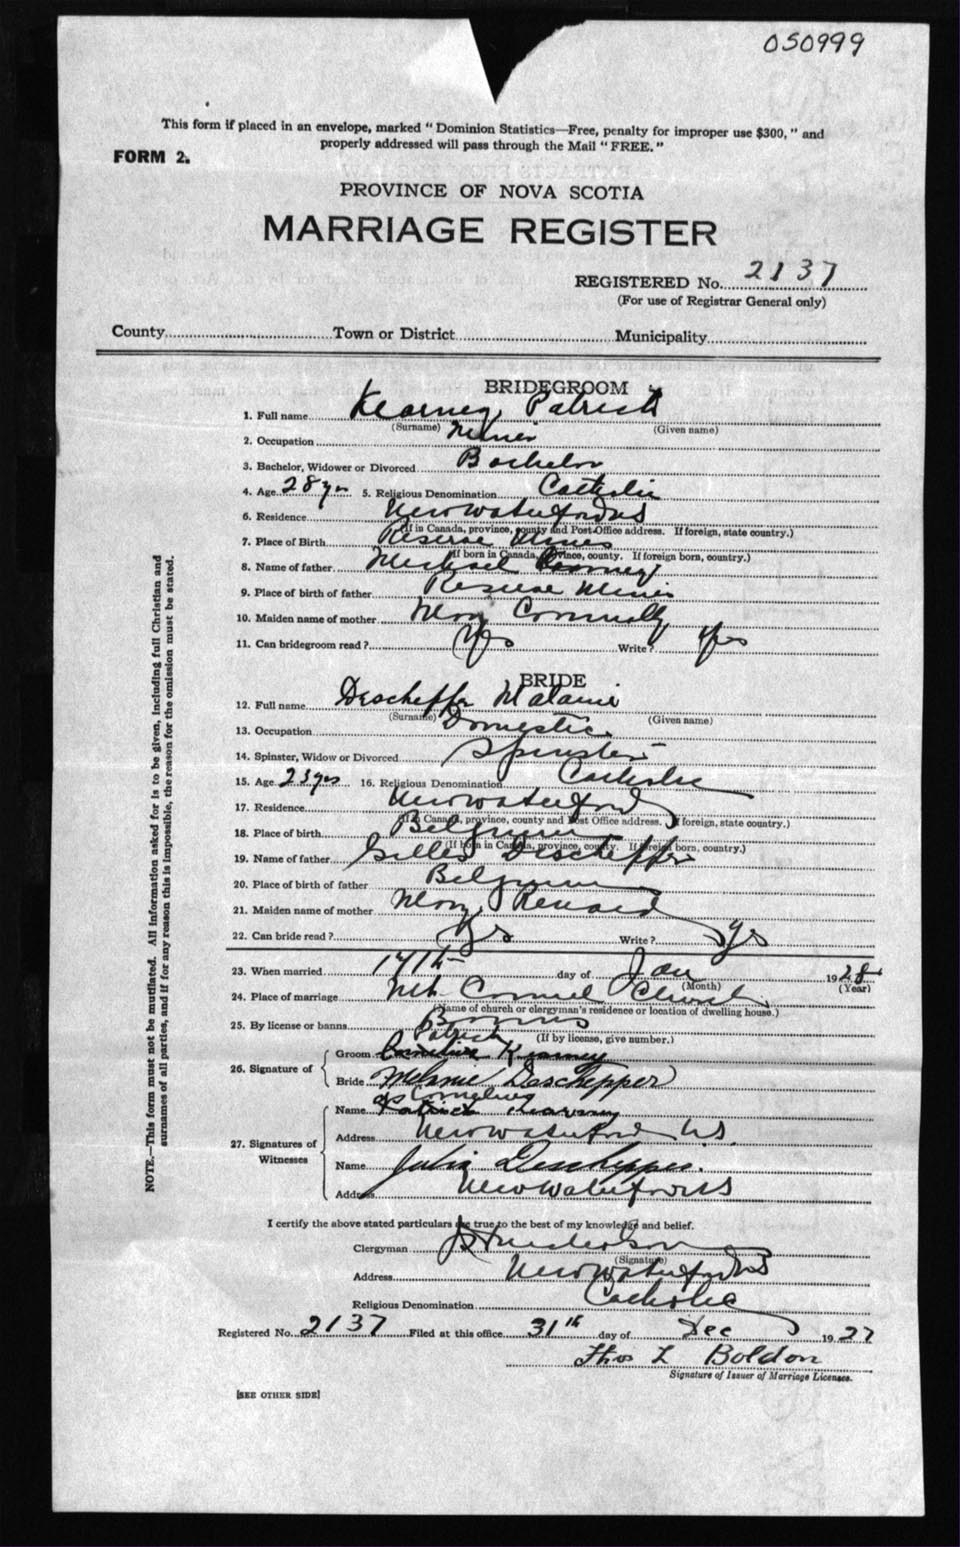 050999
This form if placed in an envelope, marked "Dominion Statistics—Free, penalty for improper use $300," and
properly addressed will pass through the Mail "FREE."
FORM 2.
PROVINCE OF NOVA SCOTIA
MARRIAGE REGISTER
REGISTERED No. 2137
(For use of Registrar General only)
County Town or District Municipality
BRIDEGROOM
1. Full name Kearney, Patrick
(Surname) (Given name)
2. Occupation Miner
3. Bachelor, Widower or Divorced Bachelor
4. Age 28 yrs 5. Religious Denomination Catholic
6. Residence New Waterford NS
(If in Canada, province, county and Post Office address. If foreign, state country.)
7. Place of Birth Reserve Mines
(If born in Canada, province, county. If foreign born, country.)
8. Name of father Michael Kearney
9. Place of birth of father Reserve Mines
10. Maiden name of mother Mary Connolly
11. Can bridegroom read? Yes Write? Yes
BRIDE
12. Full name Descheffer Malanie
(Surname) (Given name)
13. Occupation Domestic
14. Spinster, Widow or Divorced Spinster
15. Age 23 yrs 16. Religious Denomination Catholic
17. Residence New Waterford
(If in Canada, province, county and Post Office address. If foreign, state country.)
18. Place of birth Belgium
(If born in Canada, province, county. If foreign born, country.)
19. Name of father Gilles Descheffer
20. Place of birth of father Belgium
21. Maiden name of mother Mary Renard
22. Can bride read? Yes Write? Yes
23. When married 17th day of Jan 1928
(Month) (Year)
24. Place of marriage Mt Carmel Church
(Name of church or clergyman's residence or location of dwelling house.)
25. By license or banns Banns
(If by license, give number.)
26. Signature of
Patrick
Groom Cornelius Kearney
Bride Melanie Deschepper
27. Signatures of Witnesses
Cornelius
Name Patrick Kearney
Address New Waterford N.S.
Name Julia Deschepper.
Address New Waterford NS
I certify the above stated particulars are true to the best of my knowledge and belief.
Clergyman
(Signature)
Address New Waterford NS
Religious Denomination Catholic
Registered No. 2137 Filed at this office 31th day of Dec 1927
Thos L Boldon
Signature of Issuer of Marriage Licenses.
[SEE OTHER SIDE]
NOTE.—This form must not be mutilated. All information asked for is to be given, including full Christian and
surnames of all parties, and if for any reason this is impossible, the reason for the omission must be stated.